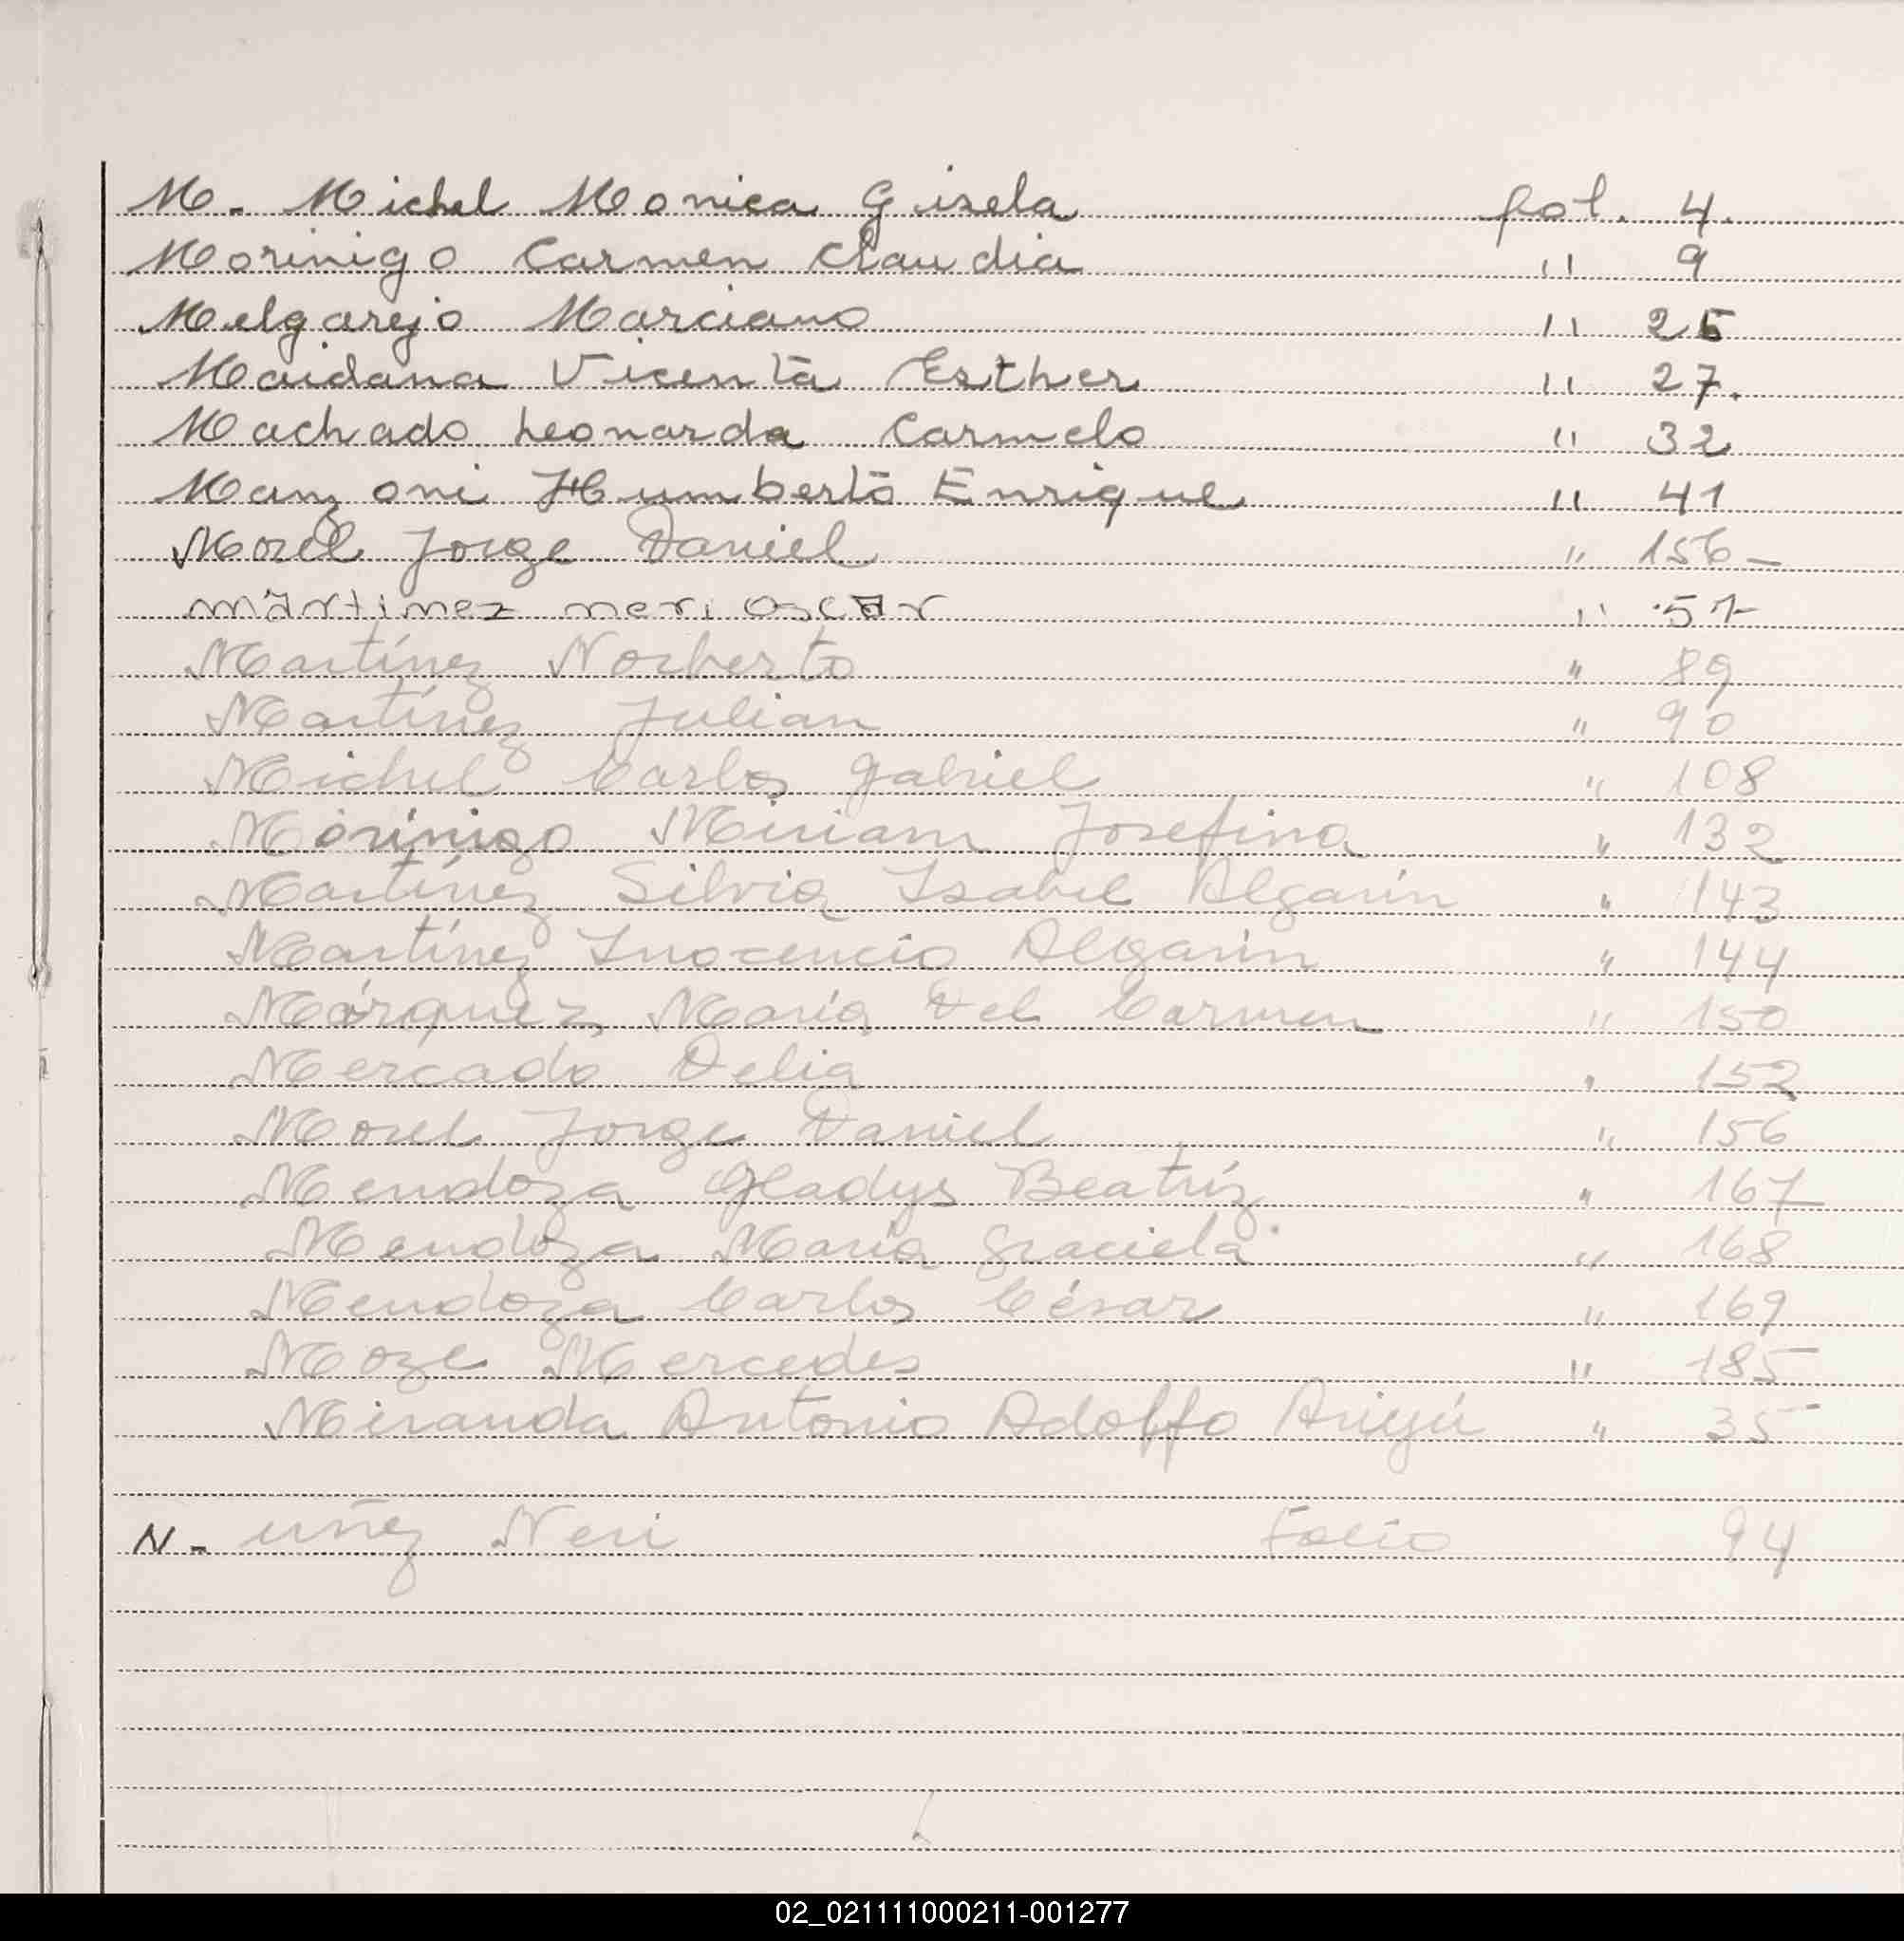 M. Michel Monica Gisela fol. 4.
Morinigo Carmen Claudia " 9
Melgarejo Marciano " 25
Maidana Vicenta Esther " 27.
Machado Leonarda Carmelo " 32
Manzoni Humberto Enrique " 41
Morel Jorge Daniel " 156-
martinez neri oscar " 57-
Martínez Norberto " 89
Martínez Julian " 90
Michel Carlos Gabriel " 108
Morinigo Miriam Josefina " 132
Martínez Silvia Isabel Algarin " 143
Martínez Inocencio Algarin " 144
Márquez María Del Carmen " 150
Mercado Delia " 152
Morel Jorge Daniel " 156
Mendoza Gladys Beatríz " 167
Mendoza María Graciela " 168
Mendoza Carlos César " 169
Moze Mercedes " 185
Miranda Antonio Adolfo " 35
N- uñez Neri Folio 94
02_021111000211-001277